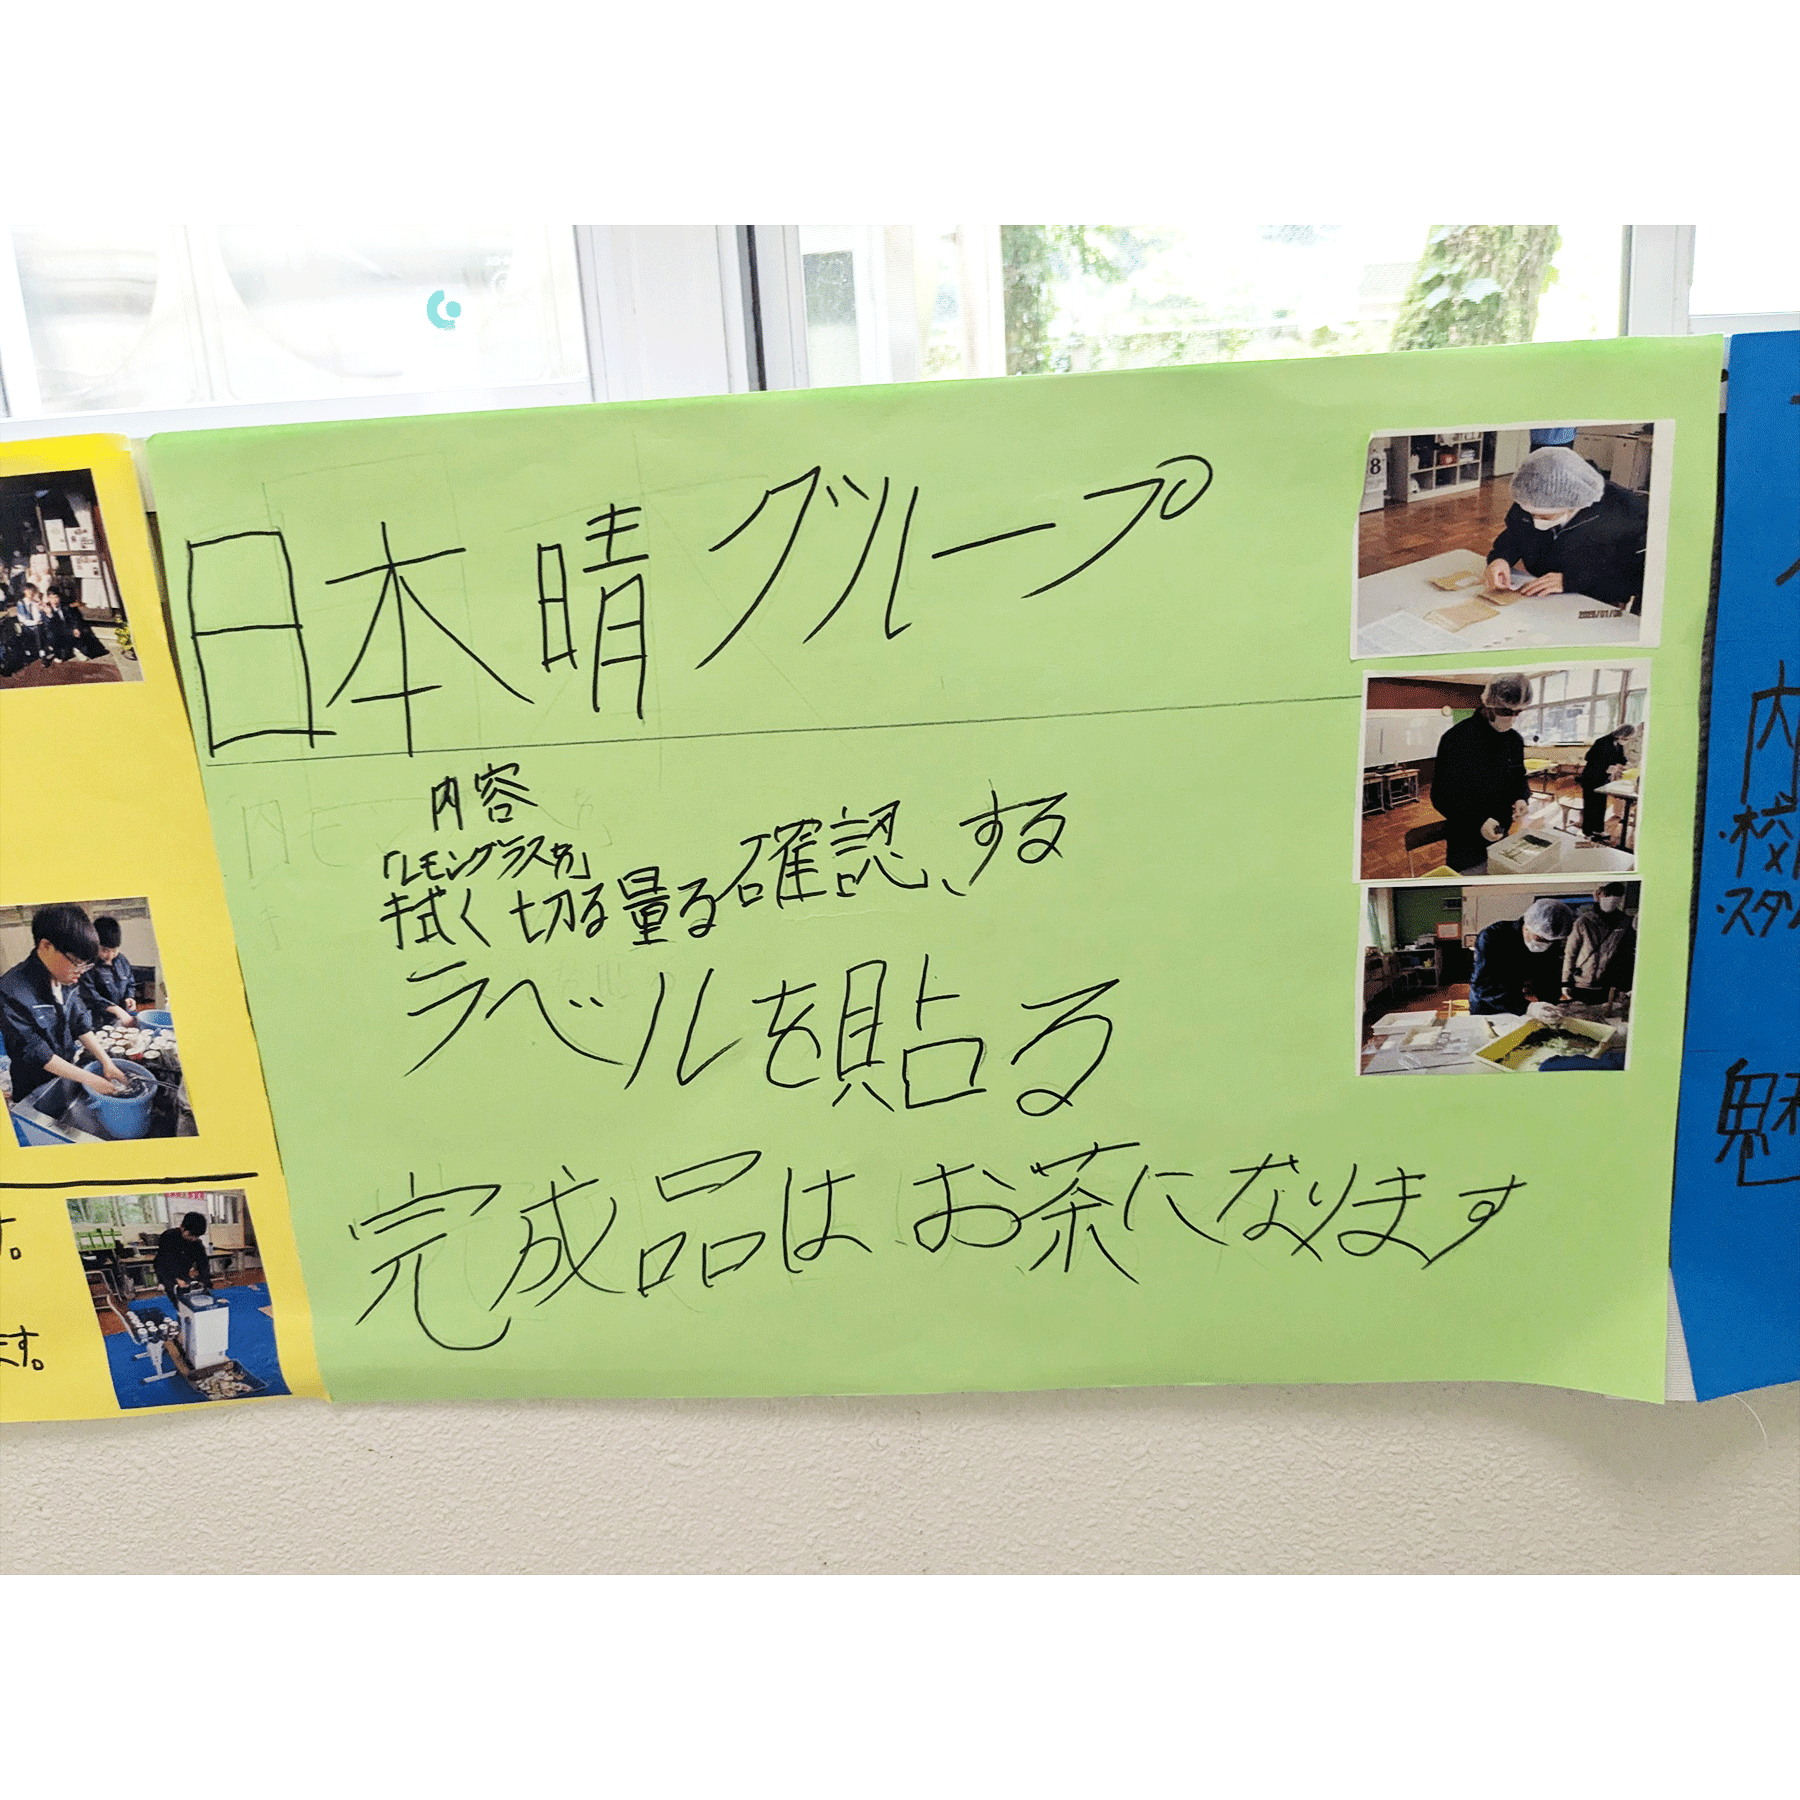 日本晴グループ
内容
「レモングラスを」
拭く切る量る確認、する
ラベルを貼る
完成品はお茶になります
す。
ます。
内
・校
・スタン
8